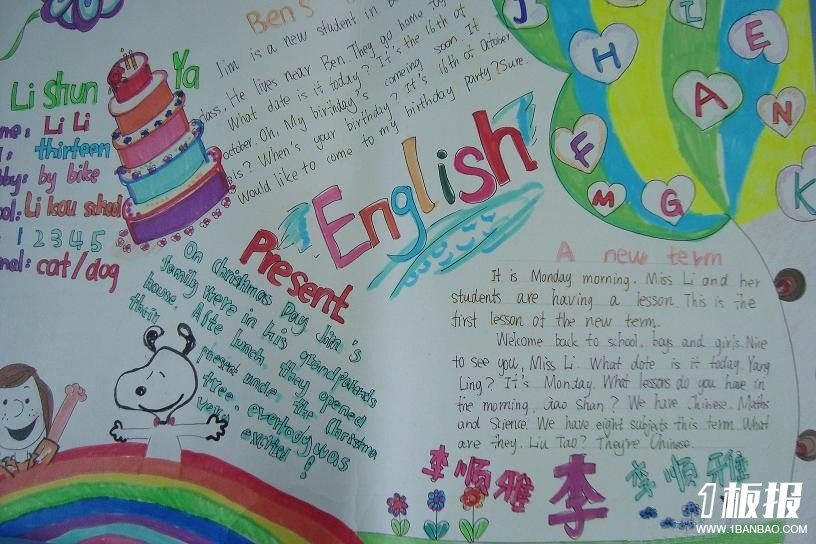 Ben's
Jim is a new student in
class. He lives near Ben. They go home
What date is it today? It's the 16th of
October. Oh, My birthday's comeing soon. It
is? When's your birthday? It's 16th of October
Would like to come to my birthday party? Sure.
Li Shun Ya
me: Li Li
thirteen
bby: by bike
ool: Li kou school
1 2 3 4 5
mal: cat/dog
English
Present
On Christmas Day Jim's
family were in his grandparents
house. Afte lunch. they opened
their present unde. the Christma
tree. everbody was
very excited!
J
I
H
E
A
N
F
M
G
K
A new term
It is Monday morning. Miss Li and her
students are having a lesson. This is the
first lesson of the new term.
Welcome back to school, boys and girls. Nice
to see you, Miss Li. What date is it today. Yang
Ling? It's Monday. What lessons do you have in
the morning, Gao Shan? We have Chinese. Maths
and Science. We have eight subjects this term. What
are they. Liu Tao? They're Chinese.
李顺雅 李 李顺雅
1板报
WWW.1BANBAO.COM